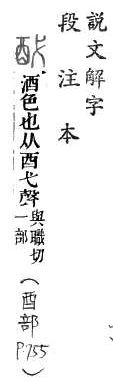 說文解字
段注本
酒色也从酉弋聲與職切一部(酉部P.755)